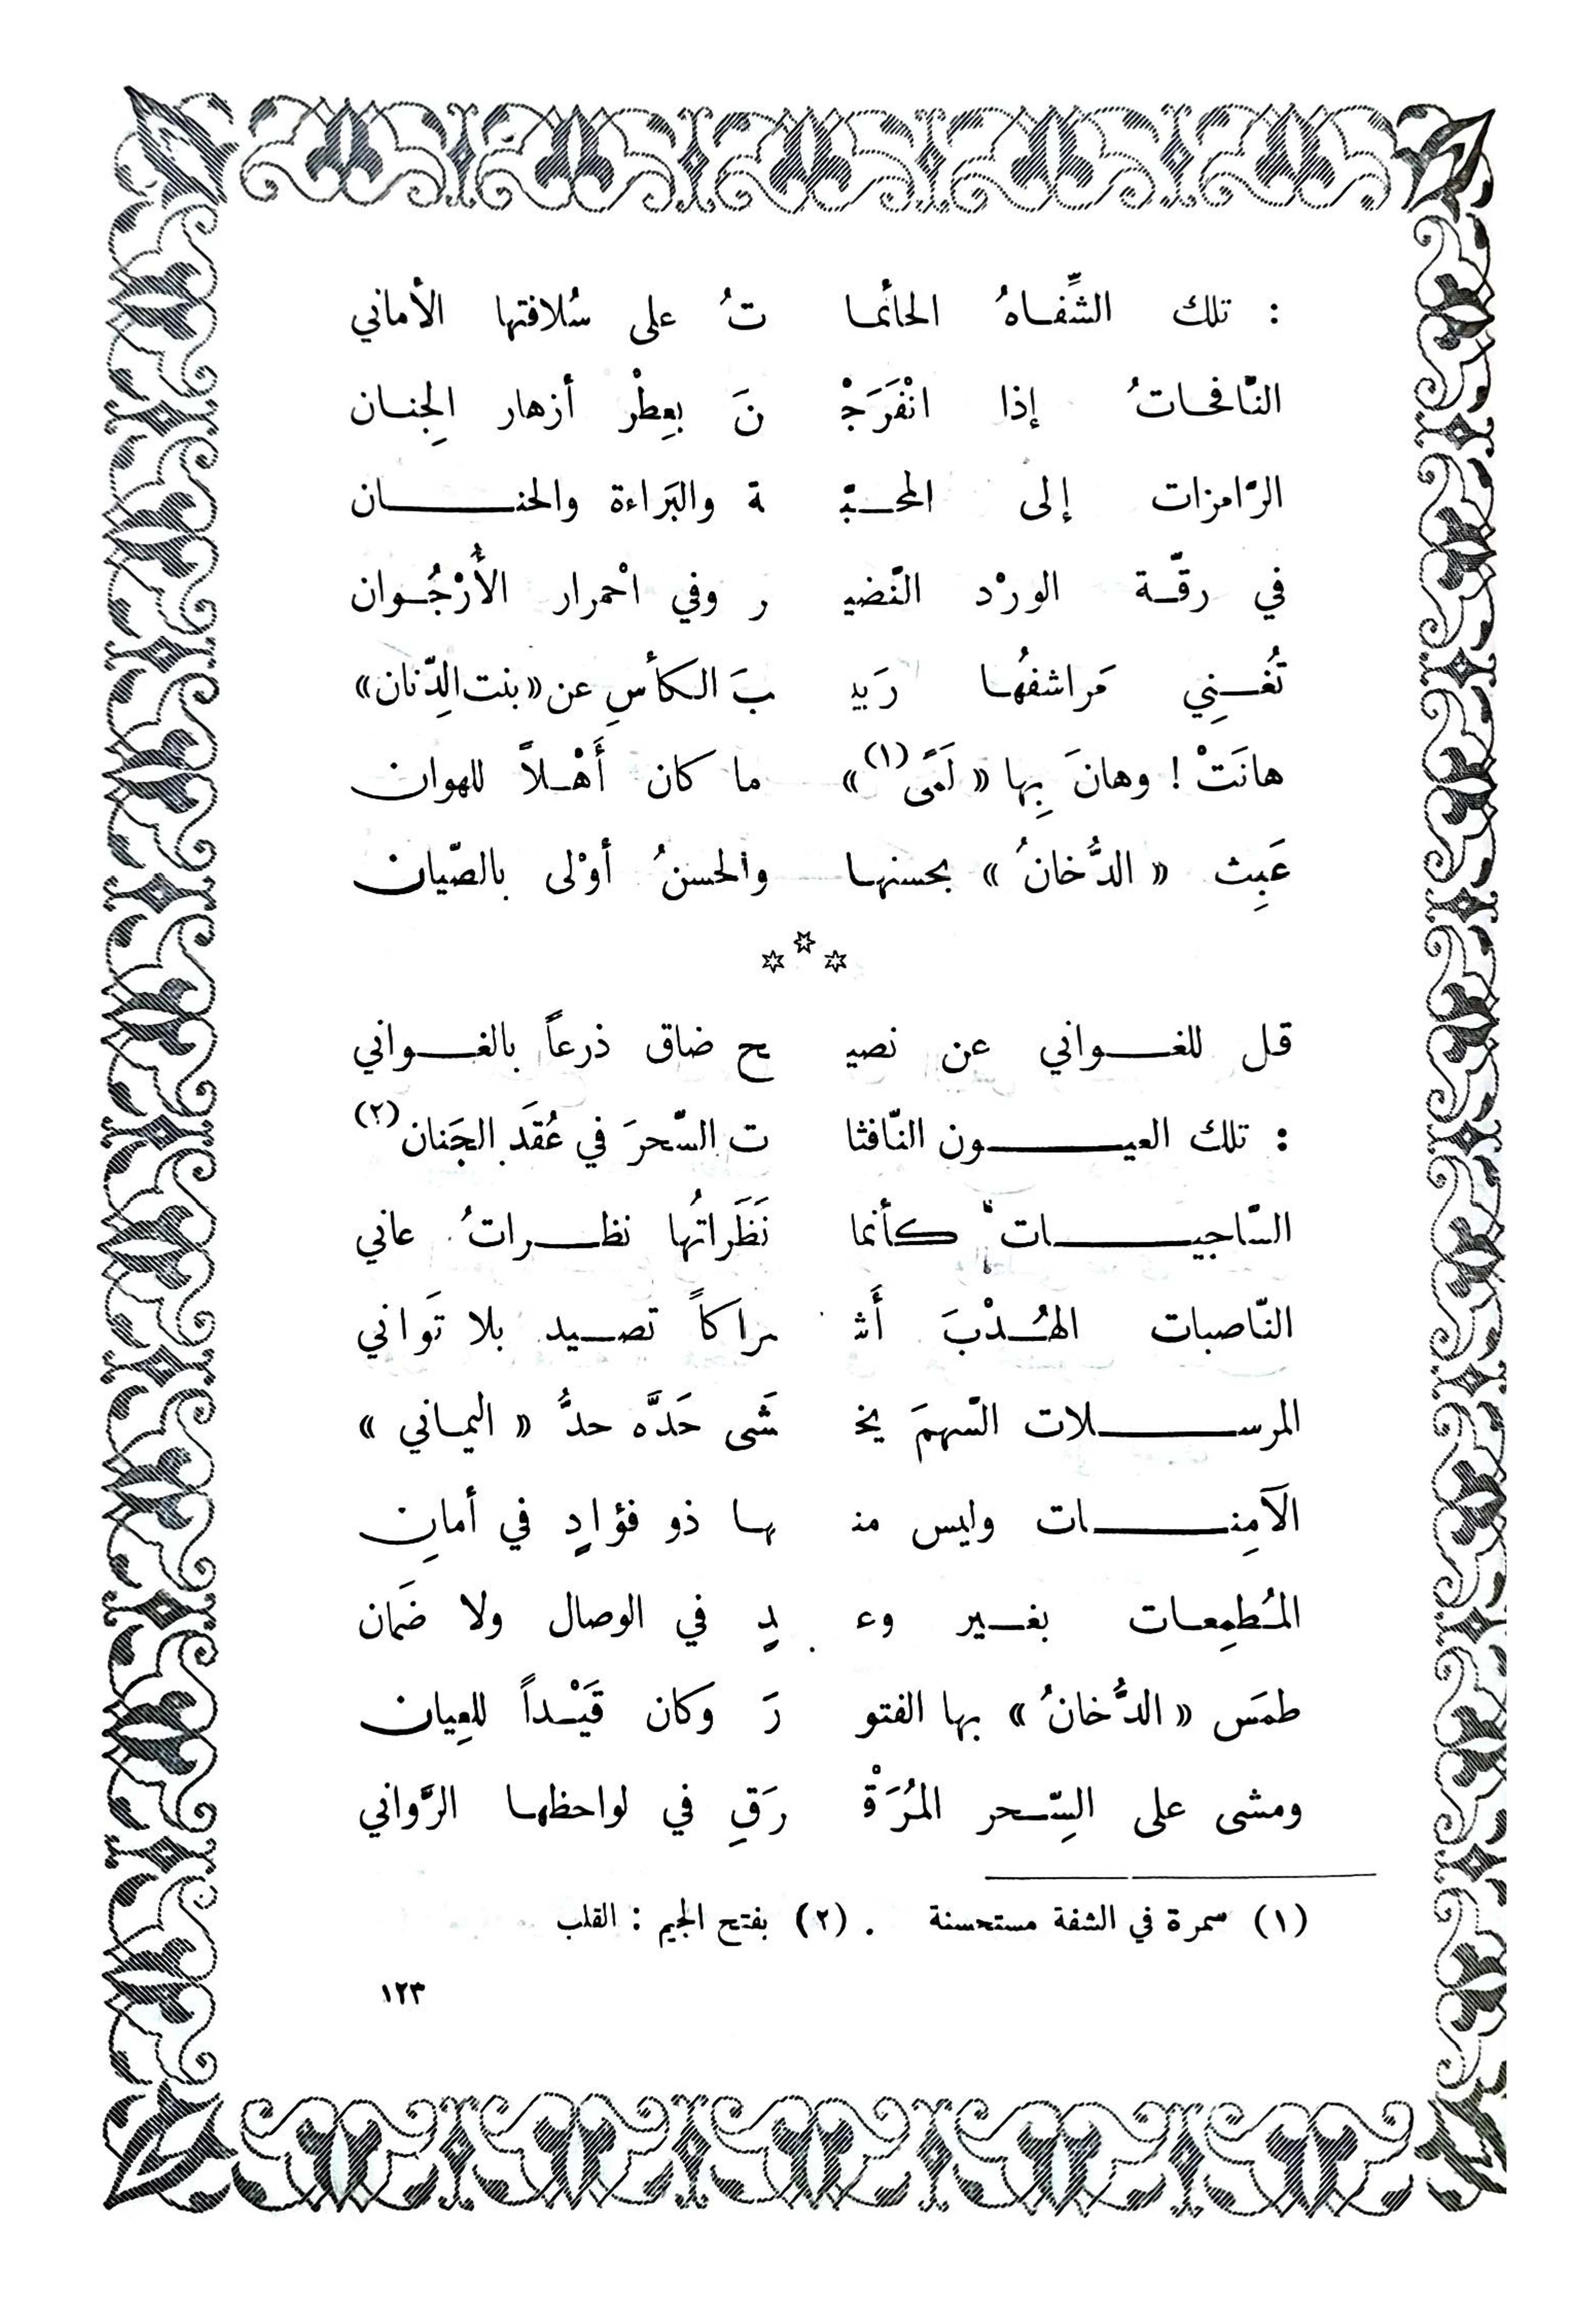 : تلك الشِّفـاهُ الحائمـا تُ على سُلافتها الأماني
النّافحـاتُ إذا انْفَرَجْـ نَ بِعِطْر أزهار الجِنـان
الرّامزات إلى المحـبّـ ة والبَراءة والحنـــان
في رقّـة الورْد النّضيـ ر وفي احْمرار الأُرْجُـوان
تُغْـنِي مَراشفُهـا رَبيـ بَ الكأسِ عن «بنت الدِّنان»
هانَتْ ! وهانَ بِها « لَمًى(١) » ما كان أَهْـلاً للهوان
عَبِث « الدُّخانُ » بحسنهـا والحسنُ أوْلى بالصّيان
* * *
قـل للغــواني عن نصيـ ـح ضاق ذرعاً بالغــواني
: تلك العيـــون النّافثا ت السّحرَ في عُقَد الجَنان(٢)
السّاجيـــات كأنما نَظَراتُها نظـــراتُ عاني
النّاصبات الهُـدْبَ أَشـ ـراكاً تصـيد بلا تَواني
المرســـلات السّهمَ يخـ ـشَى حَدَّه حدُّ « اليمـاني »
الآمِنـــات وليس منـ هـا ذو فؤادٍ في أمانِ
المُـطمِعـات بغـير وعـ ـدٍ في الوصال ولا ضَمان
طمَس « الدُّخانُ » بها الفتو رَ وكان قَيْـداً للعِيان
ومشى على السِّـحر المُرَقْـ رَقِ في لواحظهـا الرَّواني
(١) سمرة في الشفة مستحسنة . (٢) بفتح الجيم : القلب
١٢٣